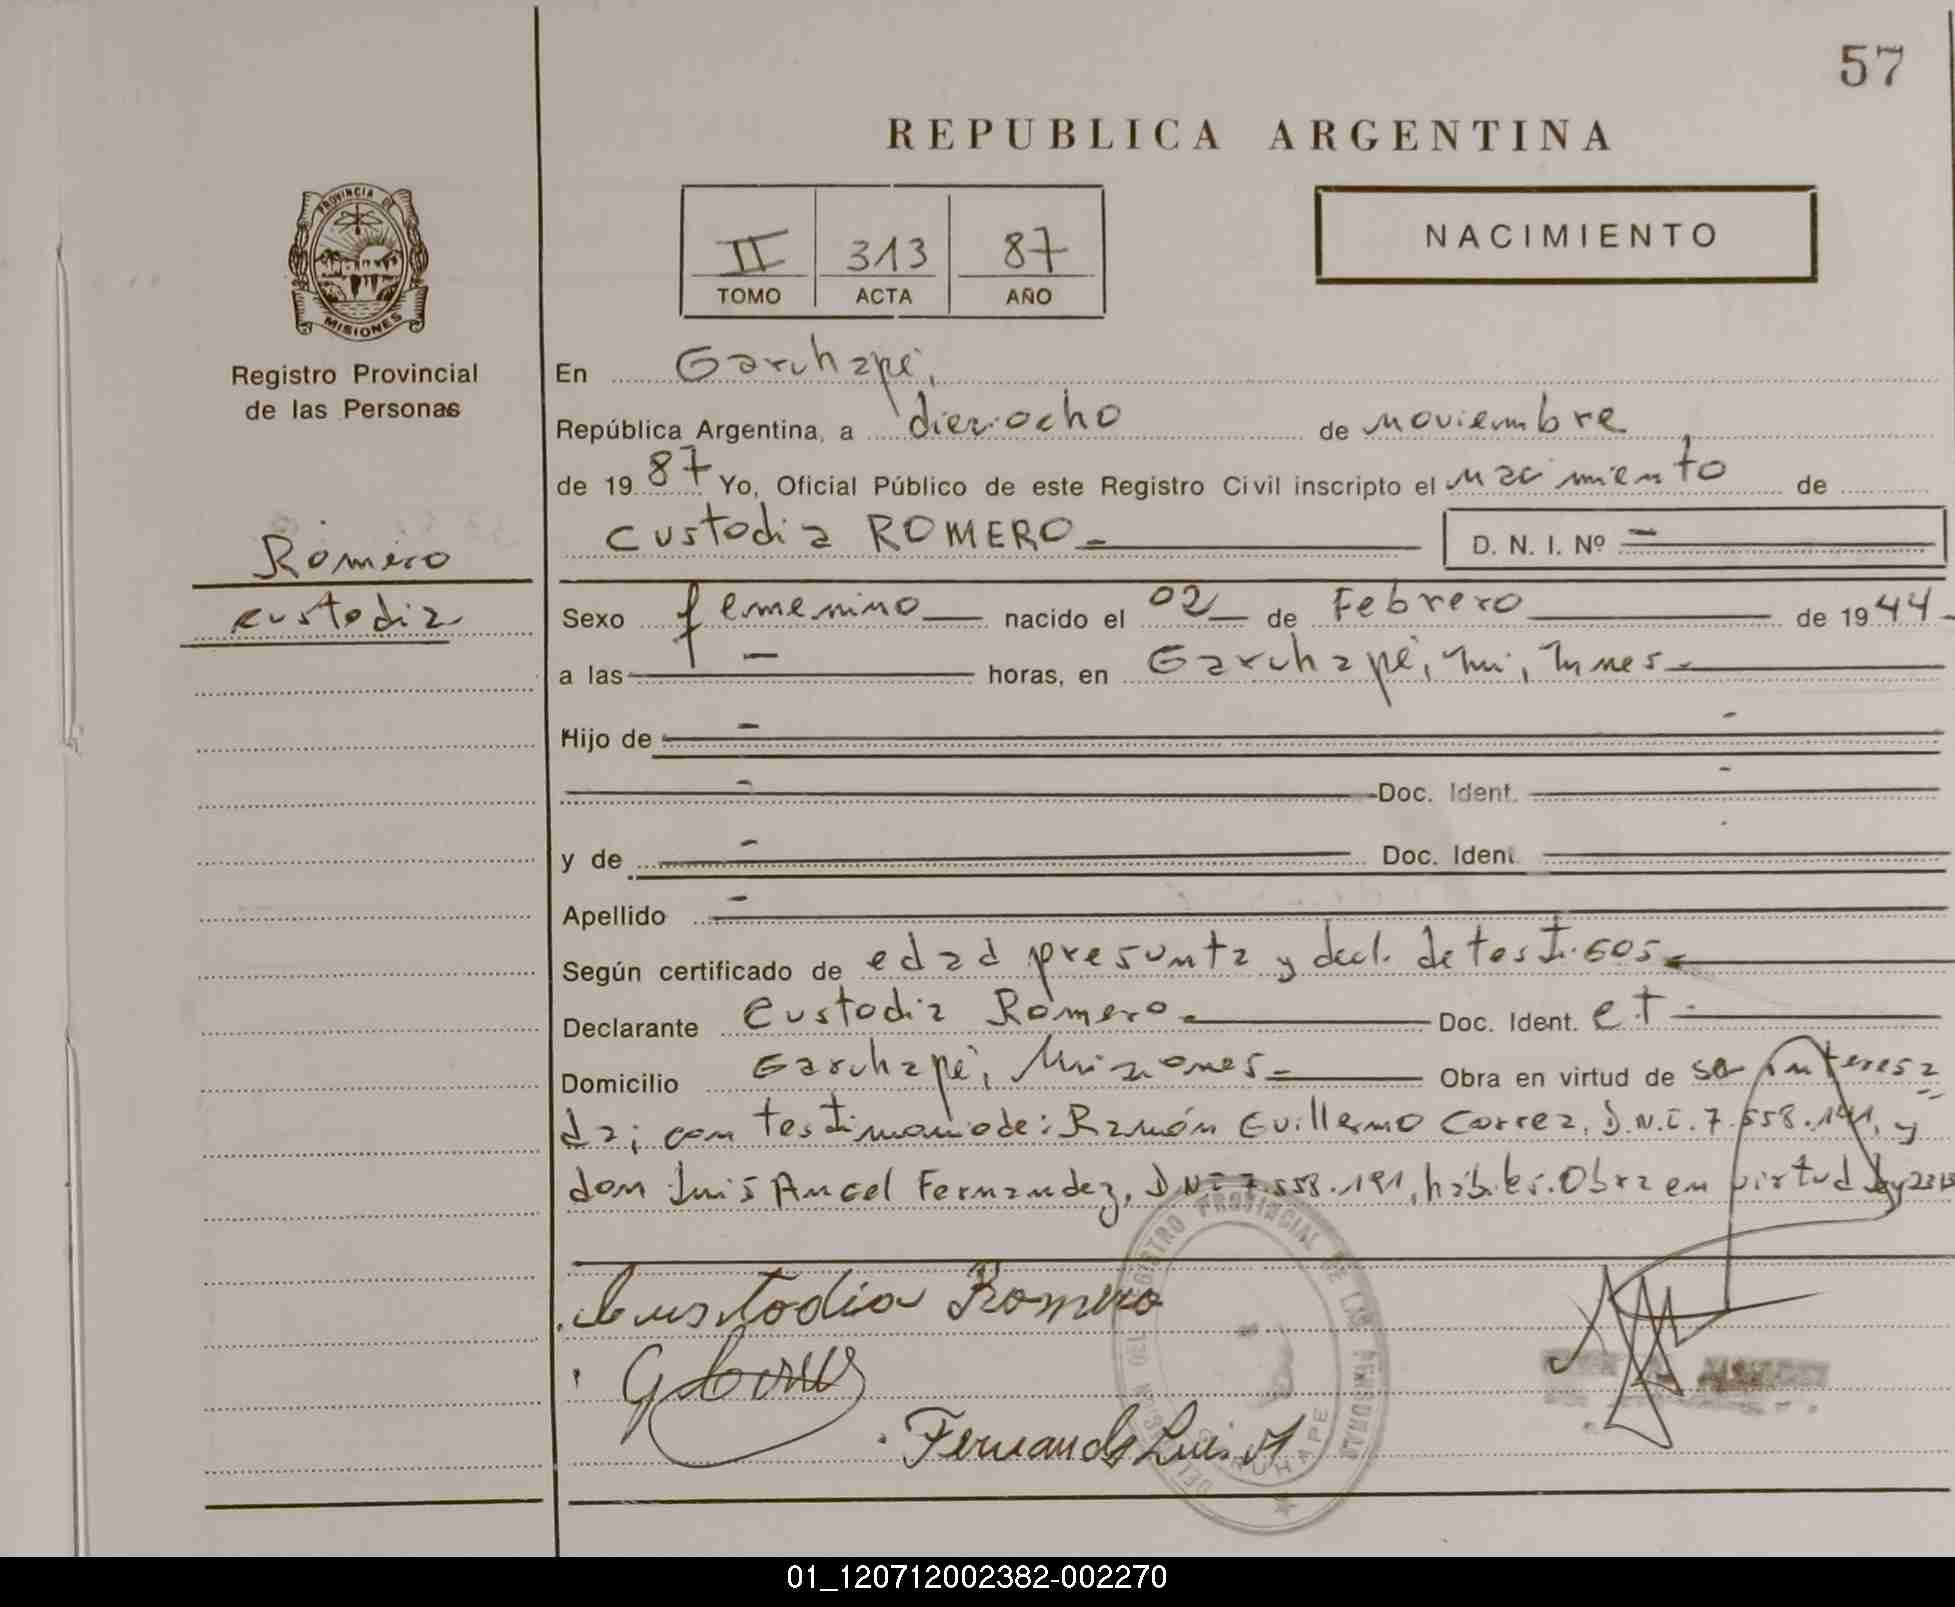 57
REPUBLICA ARGENTINA
PROVINCIA DE
MISIONES
II 313 87
TOMO ACTA AÑO
NACIMIENTO
Registro Provincial
de las Personas
En Garuhapé,
República Argentina, a dieciocho de noviembre
de 19 87 Yo, Oficial Público de este Registro Civil inscripto el nacimiento de
Custodia ROMERO - D. N. I. Nº -
Romero
Custodia
Sexo femenino nacido el 02 de Febrero de 19 44
a las - horas, en Garuhapé,
Hijo de -
- Doc. Ident.
y de - Doc. Ident.
Apellido -
Según certificado de edad presunta y decl. de testigos
Declarante Custodia Romero Doc. Ident. et
Domicilio Garuhapé, Misiones Obra en virtud de ser interesa
da; con testimonio de: Ramón Guillermo Correa, D.N.I. 7.558.141, y
don Luis Angel Fernandez, DNI 7.558.191, hábiles. Obra en virtud ley
Custodia Romero
Fernande Luis A
REGISTRO PROVINCIAL DE LAS PERSONAS
01_120712002382-002270